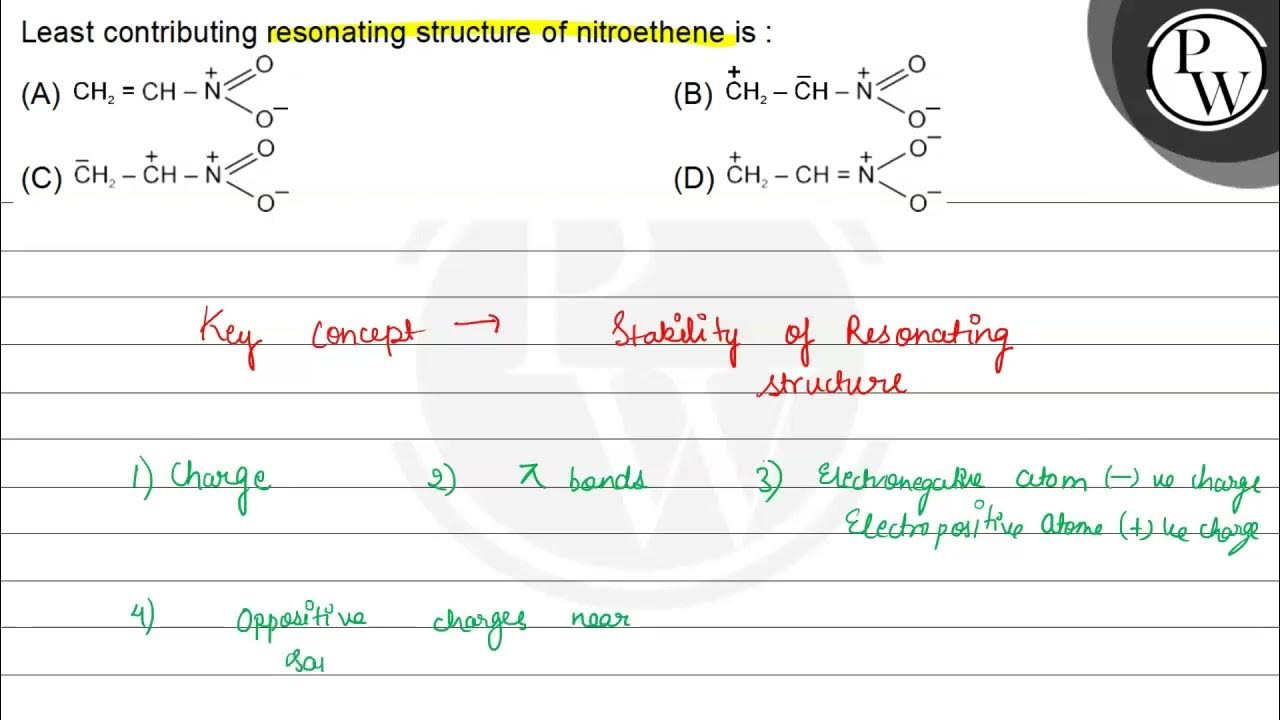 Least contributing resonating structure of nitroethene is :
(A) CH₂ = CH – N⁺ O O⁻
(B) C⁺H₂ – C̄H – N⁺ O O⁻
(C) C̄H₂ – C⁺H – N⁺ O O⁻
(D) C⁺H₂ – CH = N⁺ O⁻ O⁻
P
W
Key concept → Stability of Resonating
structure
1) Charge 2) π bonds 3) Electronegative atom (–) ve charge
Electropositive atome (+) ve charge
4) Oppositive charges near